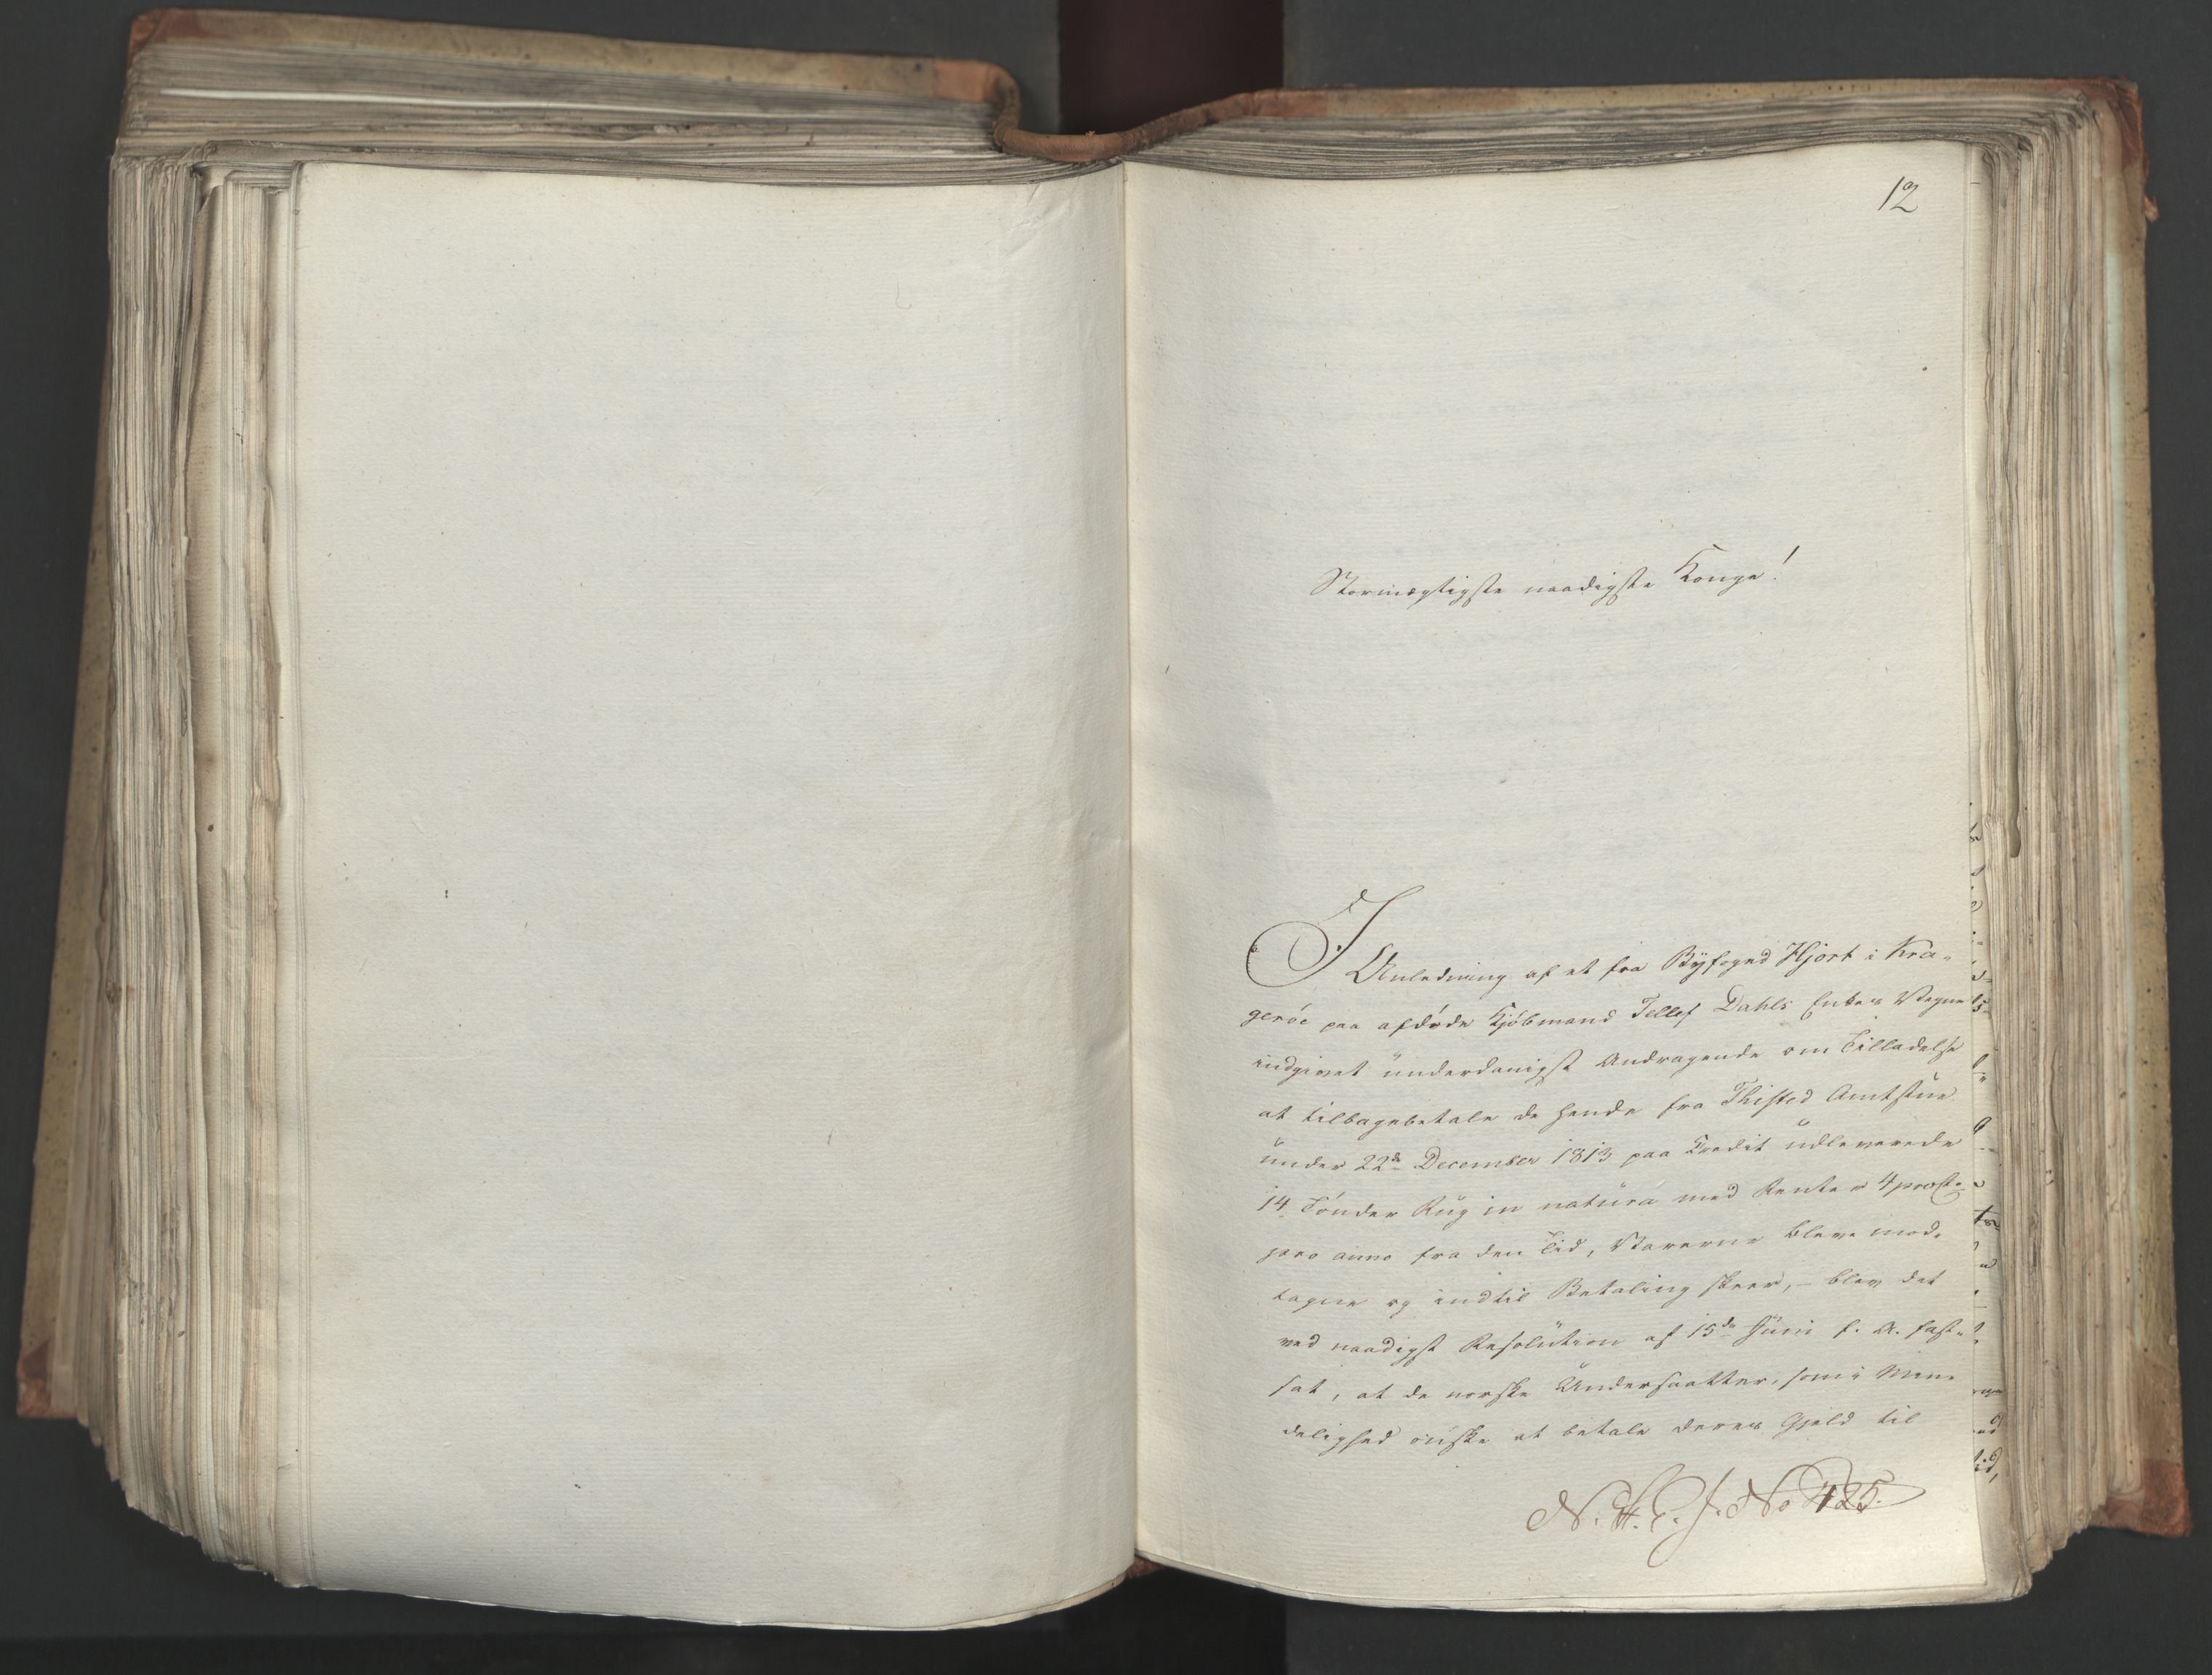 12
Stormægtigste naadigste Konge!
I Anledning af et fra Byfoged Hjort i Kra-
geröe paa afdöde Kjöbmand Tellef Dahls Enkes Vegne
indgivet underdanigst Andragende om Tilladelse
at tilbagebetale de hende fra Thisted Amtstue
under 22de December 1813 paa Credit udleverede
14 Tönder Rug in natura med Renter 4 procto
pro anno fra den Tid, Varerne bleve mod-
tagne og indtil Betaling skeer, - blev det
ved naadigst Resolution af 15de Juni f. A. fast-
sat, at de norske Undersaatter, som i Min-
delighed önske at betale deres Gjeld til
N. H. C. J. No 425.